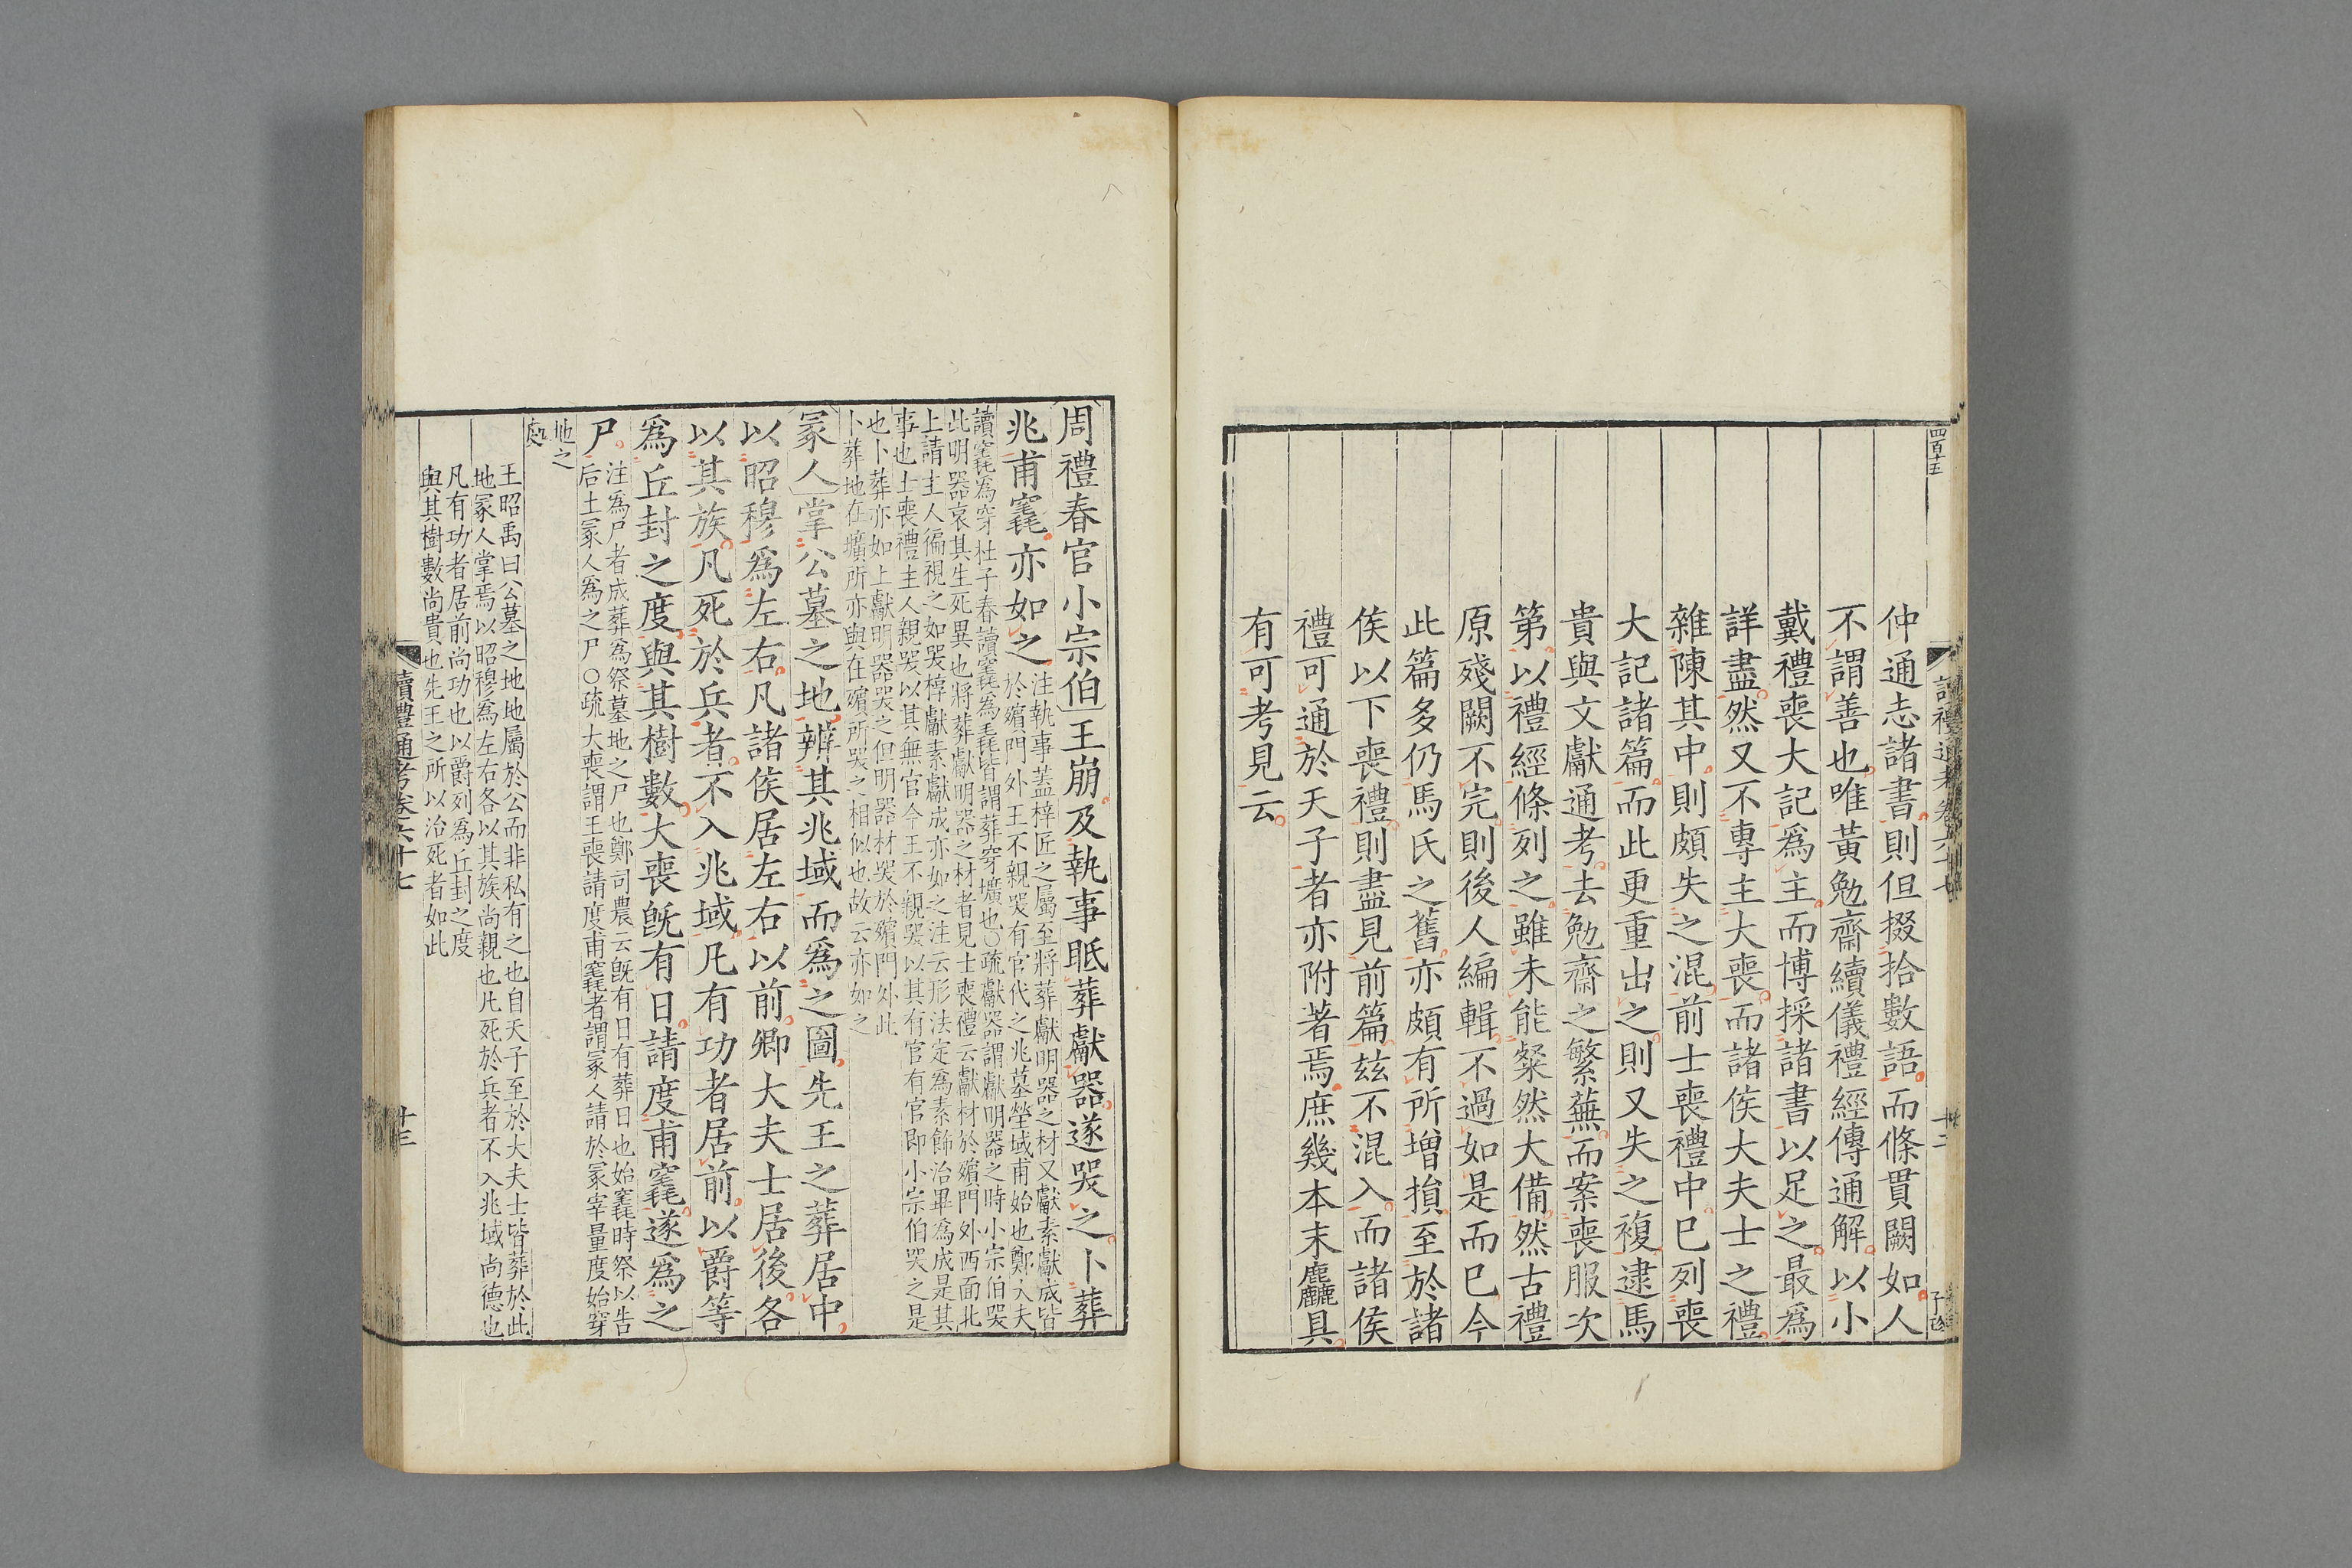 四百十五
讀禮通考卷六十七
十二
子珍
仲通志諸書則但掇拾數語而條貫闕如人
不謂善也唯黃勉齋續儀禮經傳通解以小
戴禮喪大記爲主而博採諸書以足之最爲
詳盡然又不專主大喪而諸侯大夫士之禮
雜陳其中則頗失之混前士喪禮中已列喪
大記諸篇而此更重出之則又失之複逮馬
貴與文獻通考去勉齋之繁蕪而案喪服次
第以禮經條列之雖未能粲然大備然古禮
原殘闕不完則後人編輯不過如是而已今
此篇多仍馬氏之舊亦頗有所增損至於諸
侯以下喪禮則盡見前篇玆不混入而諸侯
禮可通於天子者亦附著焉庶幾本末麤具
有可考見云
周禮春官小宗伯王崩及執事眡葬獻器遂哭之卜葬
兆甫竁亦如之
注執事蓋梓匠之屬至將葬獻明器之材又獻素獻成皆
於殯門外王不親哭有官代之兆墓塋域甫始也鄭大夫
讀竁爲穿杜子春讀竁爲毳皆謂葬穿壙也○疏獻器謂獻明器之時小宗伯哭
此明器哀其生死異也將葬獻明器之材者見士喪禮云獻材於殯門外西面北
上請主人徧視之如哭椁獻素獻成亦如之注云形法定爲素飾治畢爲成是其
事也士喪禮主人親哭以其無官今王不親哭以其有官有官即小宗伯哭之是
也卜葬亦如上獻明器哭之但明器材哭於殯門外此
卜葬地在壙所亦與在殯所哭之相似也故云亦如之
冢人掌公墓之地辨其兆域而爲之圖先王之葬居中
以昭穆爲左右凡諸侯居左右以前卿大夫士居後各
以其族凡死於兵者不入兆域凡有功者居前以爵等
爲丘封之度與其樹數大喪旣有日請度甫竁遂爲之
尸
注爲尸者成葬爲祭墓地之尸也鄭司農云旣有日有葬日也始竁時祭以告
后土冢人爲之尸○疏大喪謂王喪請度甫竁者謂冢人請於冢宰量度始穿
地之
處
王昭禹曰公墓之地地屬於公而非私有之也自天子至於大夫士皆葬於此
地冢人掌焉以昭穆爲左右各以其族尚親也凡死於兵者不入兆域尚德也
凡有功者居前尚功也以爵列爲丘封之度
與其樹數尚貴也先王之所以治死者如此
讀禮通考卷六十七
十三